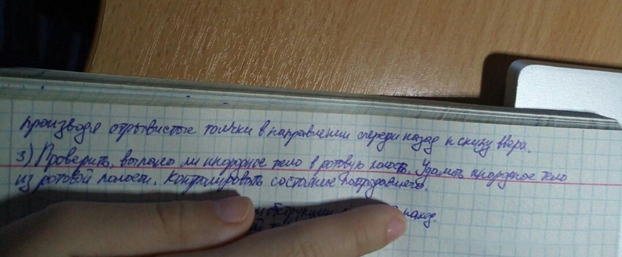 производя отрывистые толчки в направлении спереди назад и снизу вверх.
3) Проверить, выпало ли инородное тело в ротовую полость. Удалить инородное тело
из ротовой полости. Контролировать состояние пострадавшего.